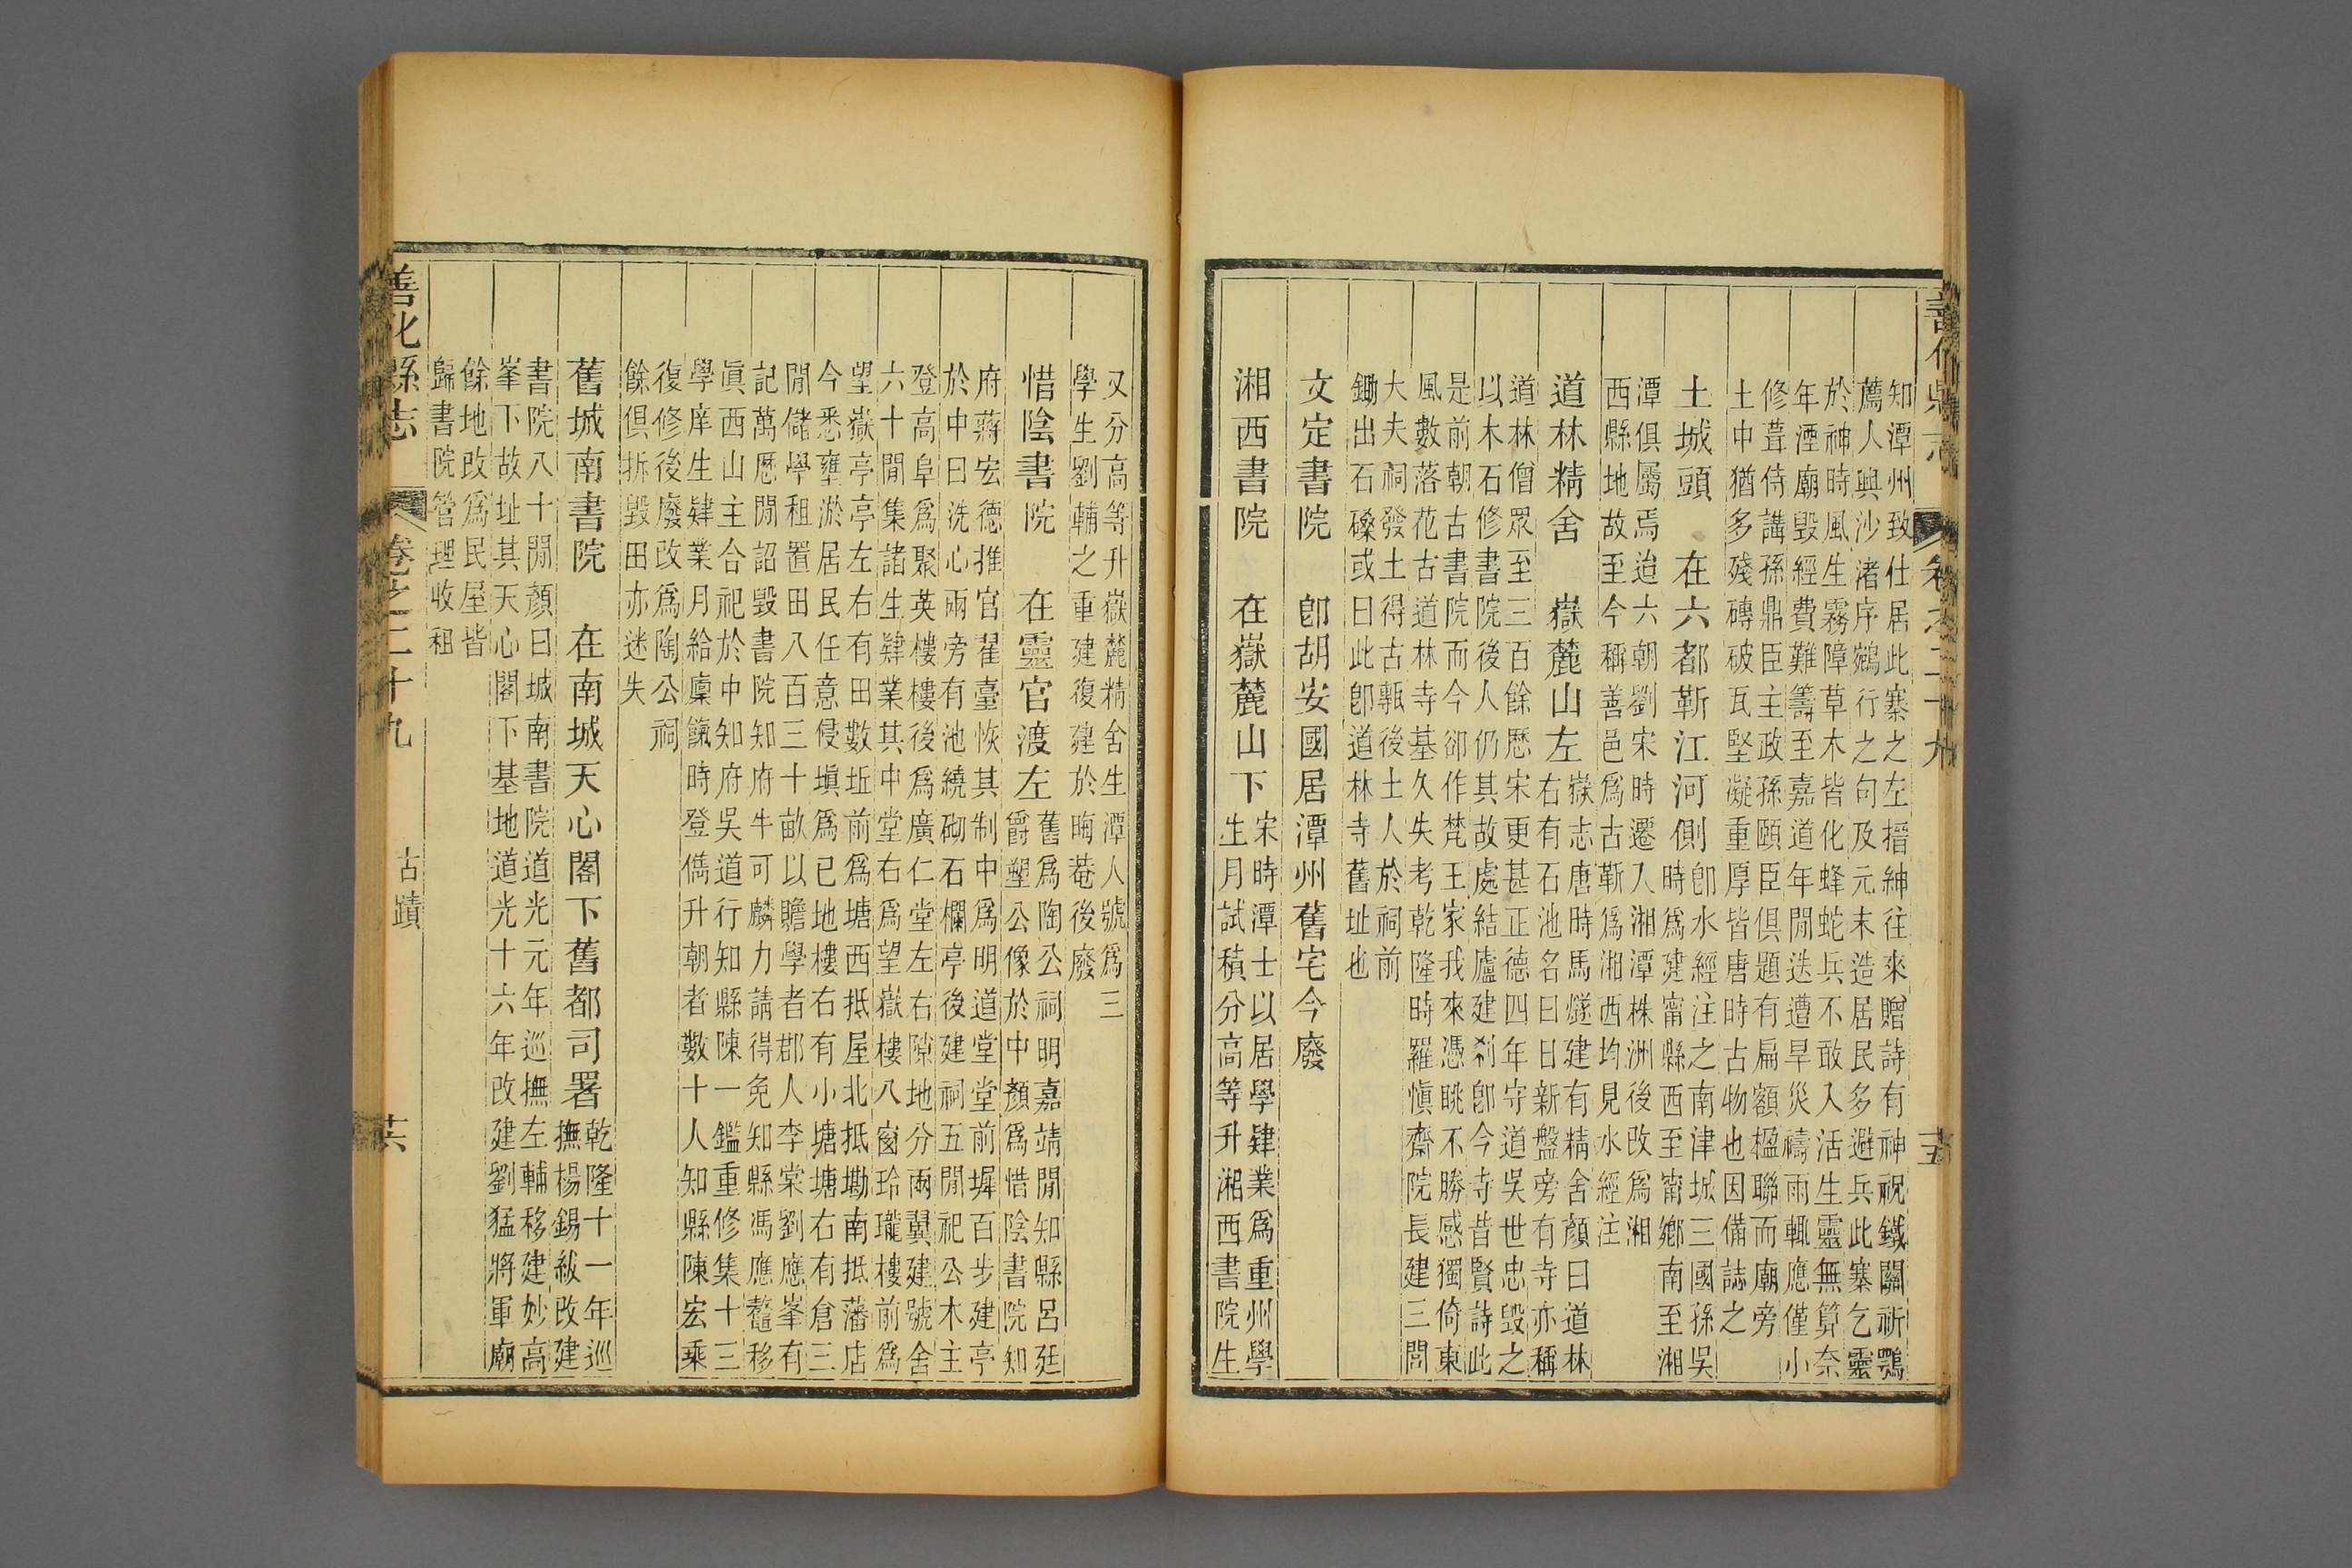 善化縣志
卷之二十九
知潭州致仕居此寨之左搢紳往來贈詩有神祝鐵關祈鶚
薦人興沙渚序鵷行之句及元末造居民多避兵此寨乞靈
於神時風生霧障草木皆化蜂蛇兵不敢入活生靈無算奈
年湮廟毀經費難籌至嘉道年閒迭遭旱災禱雨輒應僅小
修葺侍講孫鼎臣主政孫頤臣俱題有扁額楹聯而廟旁
土中猶多殘磚破瓦堅凝重厚皆唐時古物也因備誌之
土城頭 在六都靳江河側卽水經注之南津城三國孫吳
時爲建甯縣西至甯鄉南至湘
潭俱屬焉迨六朝劉宋時遷入湘潭株洲後改爲湘
西縣地故至今稱善邑爲古靳爲湘西均見水經注
道林精舍 嶽麓山左嶽志唐時馬燧建有精舍顏曰道林
右有石池名曰日新盤旁有寺亦稱
道林僧眾至三百餘歷宋更甚正德四年守道吳世忠毀之
以木石修書院後人仍其故處結廬建刹卽今寺昔賢詩此
是前朝古書院而今卻作梵王家我來憑眺不勝感獨倚東
風數落花古道林寺基久失考乾隆時羅愼齋院長建三閭
大夫祠發土得古甎後土人於祠前
鋤出石磉或曰此卽道林寺舊址也
文定書院 卽胡安國居潭州舊宅今廢
湘西書院 在嶽麓山下宋時潭士以居學肄業爲重州學
生月試積分高等升湘西書院生
又分高等升嶽麓精舍生潭人號爲三
學生劉輔之重建復建於晦菴後廢
惜陰書院 在靈官渡左舊爲陶公祠明嘉靖閒知縣呂廷
爵塑公像於中顏爲惜陰書院知
府蔣宏德推官翟臺恢其制中爲明道堂堂前墀百步建亭
於中曰洗心兩旁有池繞砌石欄亭後建祠五閒祀公木主
登高阜爲聚英樓樓後爲廣仁堂左右隙地分兩翼建號舍
六十閒集諸生肄業其中堂右爲望嶽樓八窗玲瓏樓前爲
望嶽亭亭左右有田數坵前爲塘西抵屋北抵坳南抵藩店
今悉壅淤居民任意侵塡爲已地樓右有小塘塘右有倉三
閒儲學租置田八百三十畝以贍學者郡人李棠劉應峯有
記萬歷閒詔毀書院知府牛可麟力請得免知縣馮應鼇移
眞西山主合祀於中知府吳道行知縣陳一鑑重修集十三
學庠生肄業月給廩餼時登儁升朝者數十人知縣陳宏乘
復修後廢改爲陶公祠
餘俱拆毀田亦迷失
舊城南書院 在南城天心閣下舊都司署乾隆十一年巡
撫楊錫紱改建
書院八十閒顏曰城南書院道光元年巡撫左輔移建妙高
峯下故址其天心閣下基地道光十六年改建劉猛將軍廟
餘地改爲民屋皆
歸書院管理收租
善化縣志
卷之二十九
古蹟